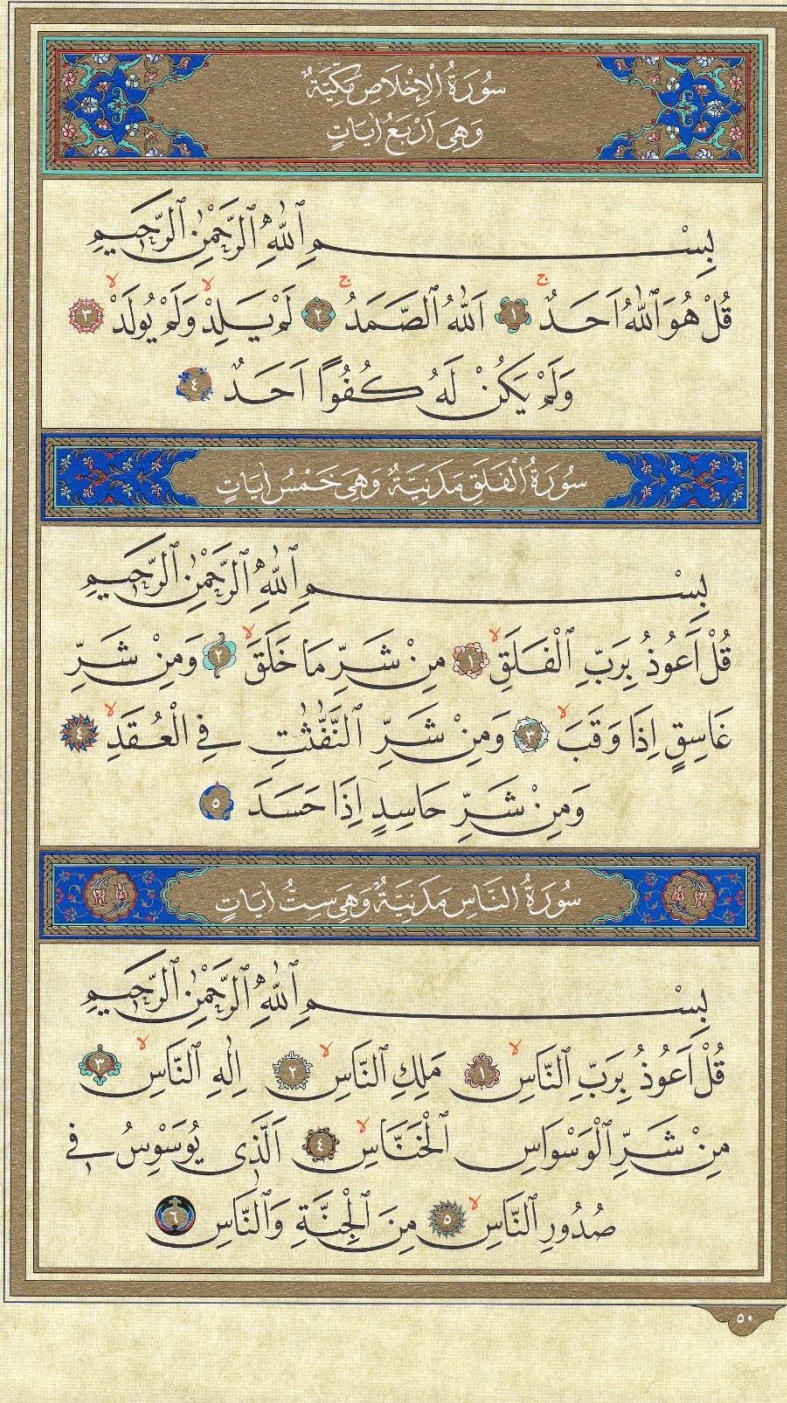 سُورَةُ الْاِخْلَاصِ مَكِّيَّةٌ
وَهِىَ اَرْبَعُ اٰيَاتٍ
بِسْــــــــمِ ٱللّٰهِ ٱلرَّحْمٰنِ ٱلرَّحِيمِ
قُلْ هُوَ ٱللّٰهُ اَحَدٌۚ ١ اَللّٰهُ ٱلصَّمَدُۚ ٢ لَمْ يَلِدْۙ وَلَمْ يُولَدْۙ ٣
وَلَمْ يَكُنْ لَهُ كُفُوًا اَحَدٌ ٤
سُورَةُ الْفَلَقِ مَدَنِيَّةٌ وَهِىَ خَمْسُ اٰيَاتٍ
بِسْــــــــمِ ٱللّٰهِ ٱلرَّحْمٰنِ ٱلرَّحِيمِ
قُلْ اَعُوذُ بِرَبِّ ٱلْفَلَقِۙ ١ مِنْ شَرِّ مَا خَلَقَۙ ٢ وَمِنْ شَرِّ
غَاسِقٍ اِذَا وَقَبَۙ ٣ وَمِنْ شَرِّ ٱلنَّفّٰثٰتِ فِي الْعُقَدِۙ ٤
وَمِنْ شَرِّ حَاسِدٍ اِذَا حَسَدَ ٥
سُورَةُ النَّاسِ مَدَنِيَّةٌ وَهِىَ سِتُّ اٰيَاتٍ
بِسْــــــــمِ ٱللّٰهِ ٱلرَّحْمٰنِ ٱلرَّحِيمِ
قُلْ اَعُوذُ بِرَبِّ ٱلنَّاسِۙ ١ مَلِكِ ٱلنَّاسِۙ ٢ اِلٰهِ ٱلنَّاسِۙ ٣
مِنْ شَرِّ ٱلْوَسْوَاسِ ٱلْخَنَّاسِۙ ٤ اَلَّذِى يُوَسْوِسُ فِي
صُدُورِ ٱلنَّاسِۙ ٥ مِنَ ٱلْجِنَّةِ وَٱلنَّاسِ ٦
٥٠